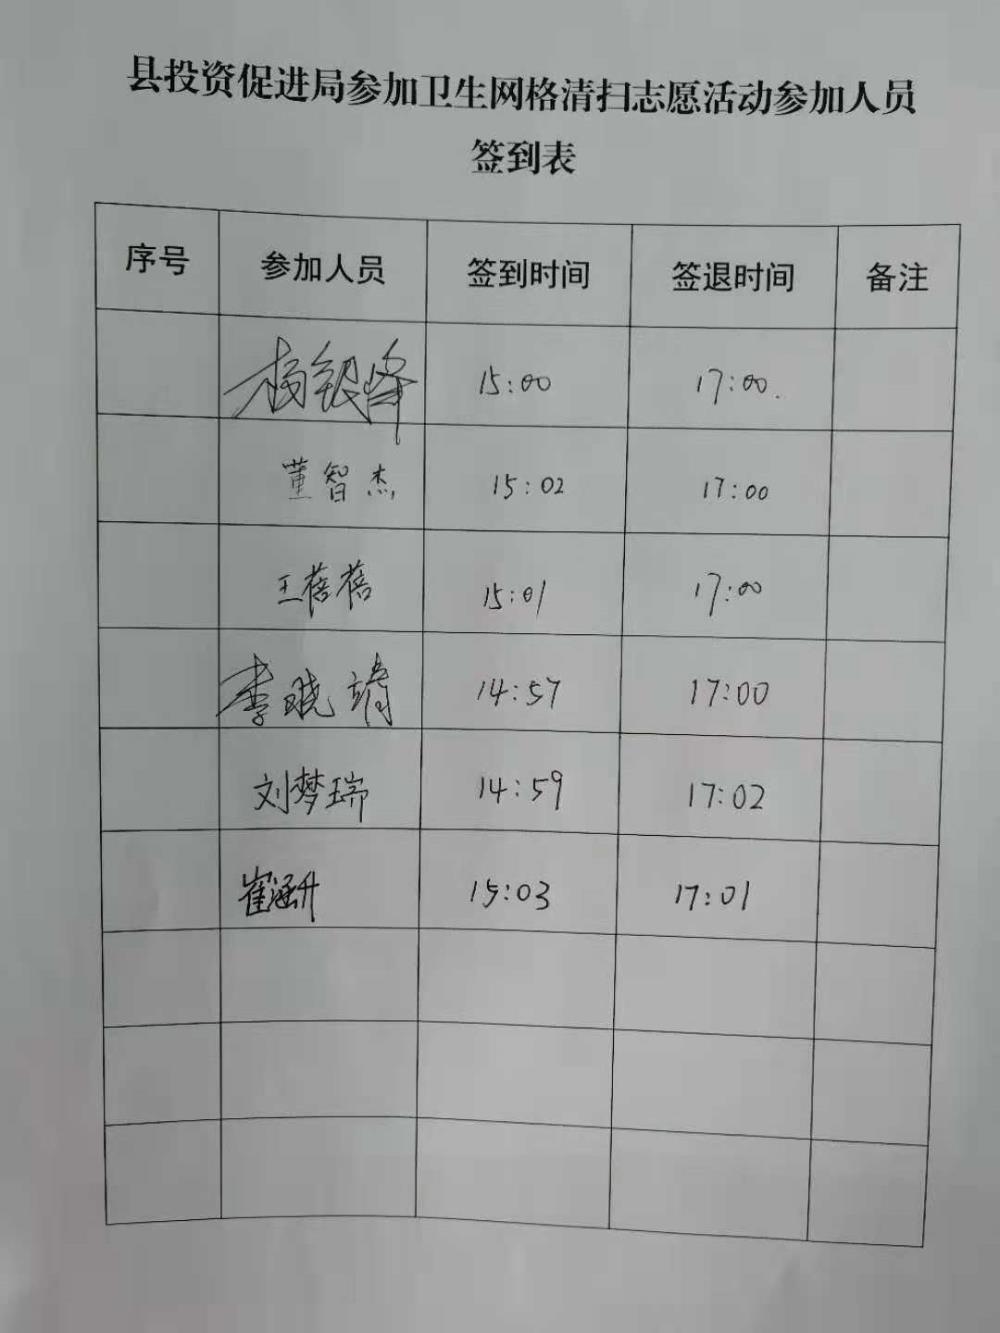 县投资促进局参加卫生网格清扫志愿活动参加人员
签到表
序号 参加人员 签到时间 签退时间 备注
杨银峰 15:00 17:00.
董智杰 15:02 17:00
王蓓蓓 15:01 17:00
李晓靖 14:57 17:00
刘梦瑞 14:59 17:02
崔涵升 15:03 17:01